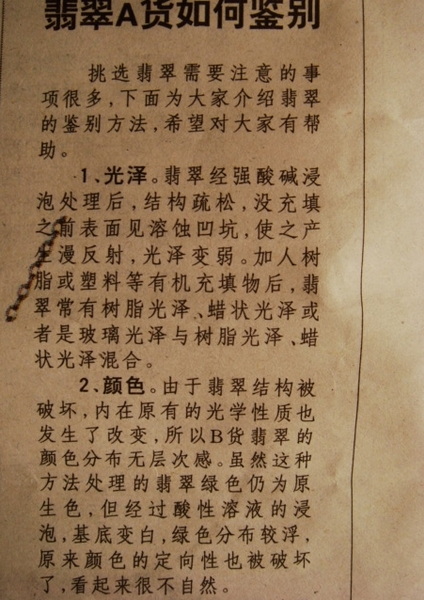 翡翠A货如何鉴别
挑选翡翠需要注意的事
项很多,下面为大家介绍翡翠
的鉴别方法,希望对大家有帮
助。
1、光泽。翡翠经强酸碱浸
泡处理后,结构疏松,没充填
之前表面见溶蚀凹坑,使之产
生漫反射,光泽变弱。加人树
脂或塑料等有机充填物后,翡
翠常有树脂光泽、蜡状光泽或
者是玻璃光泽与树脂光泽、蜡
状光泽混合。
2、颜色。由于翡翠结构被
破坏,内在原有的光学性质也
发生了改变,所以B货翡翠的
颜色分布无层次感。虽然这种
方法处理的翡翠绿色仍为原
生色,但经过酸性溶液的浸
泡,基底变白,绿色分布较浮,
原来颜色的定向性也被破坏
了,看起来很不自然。